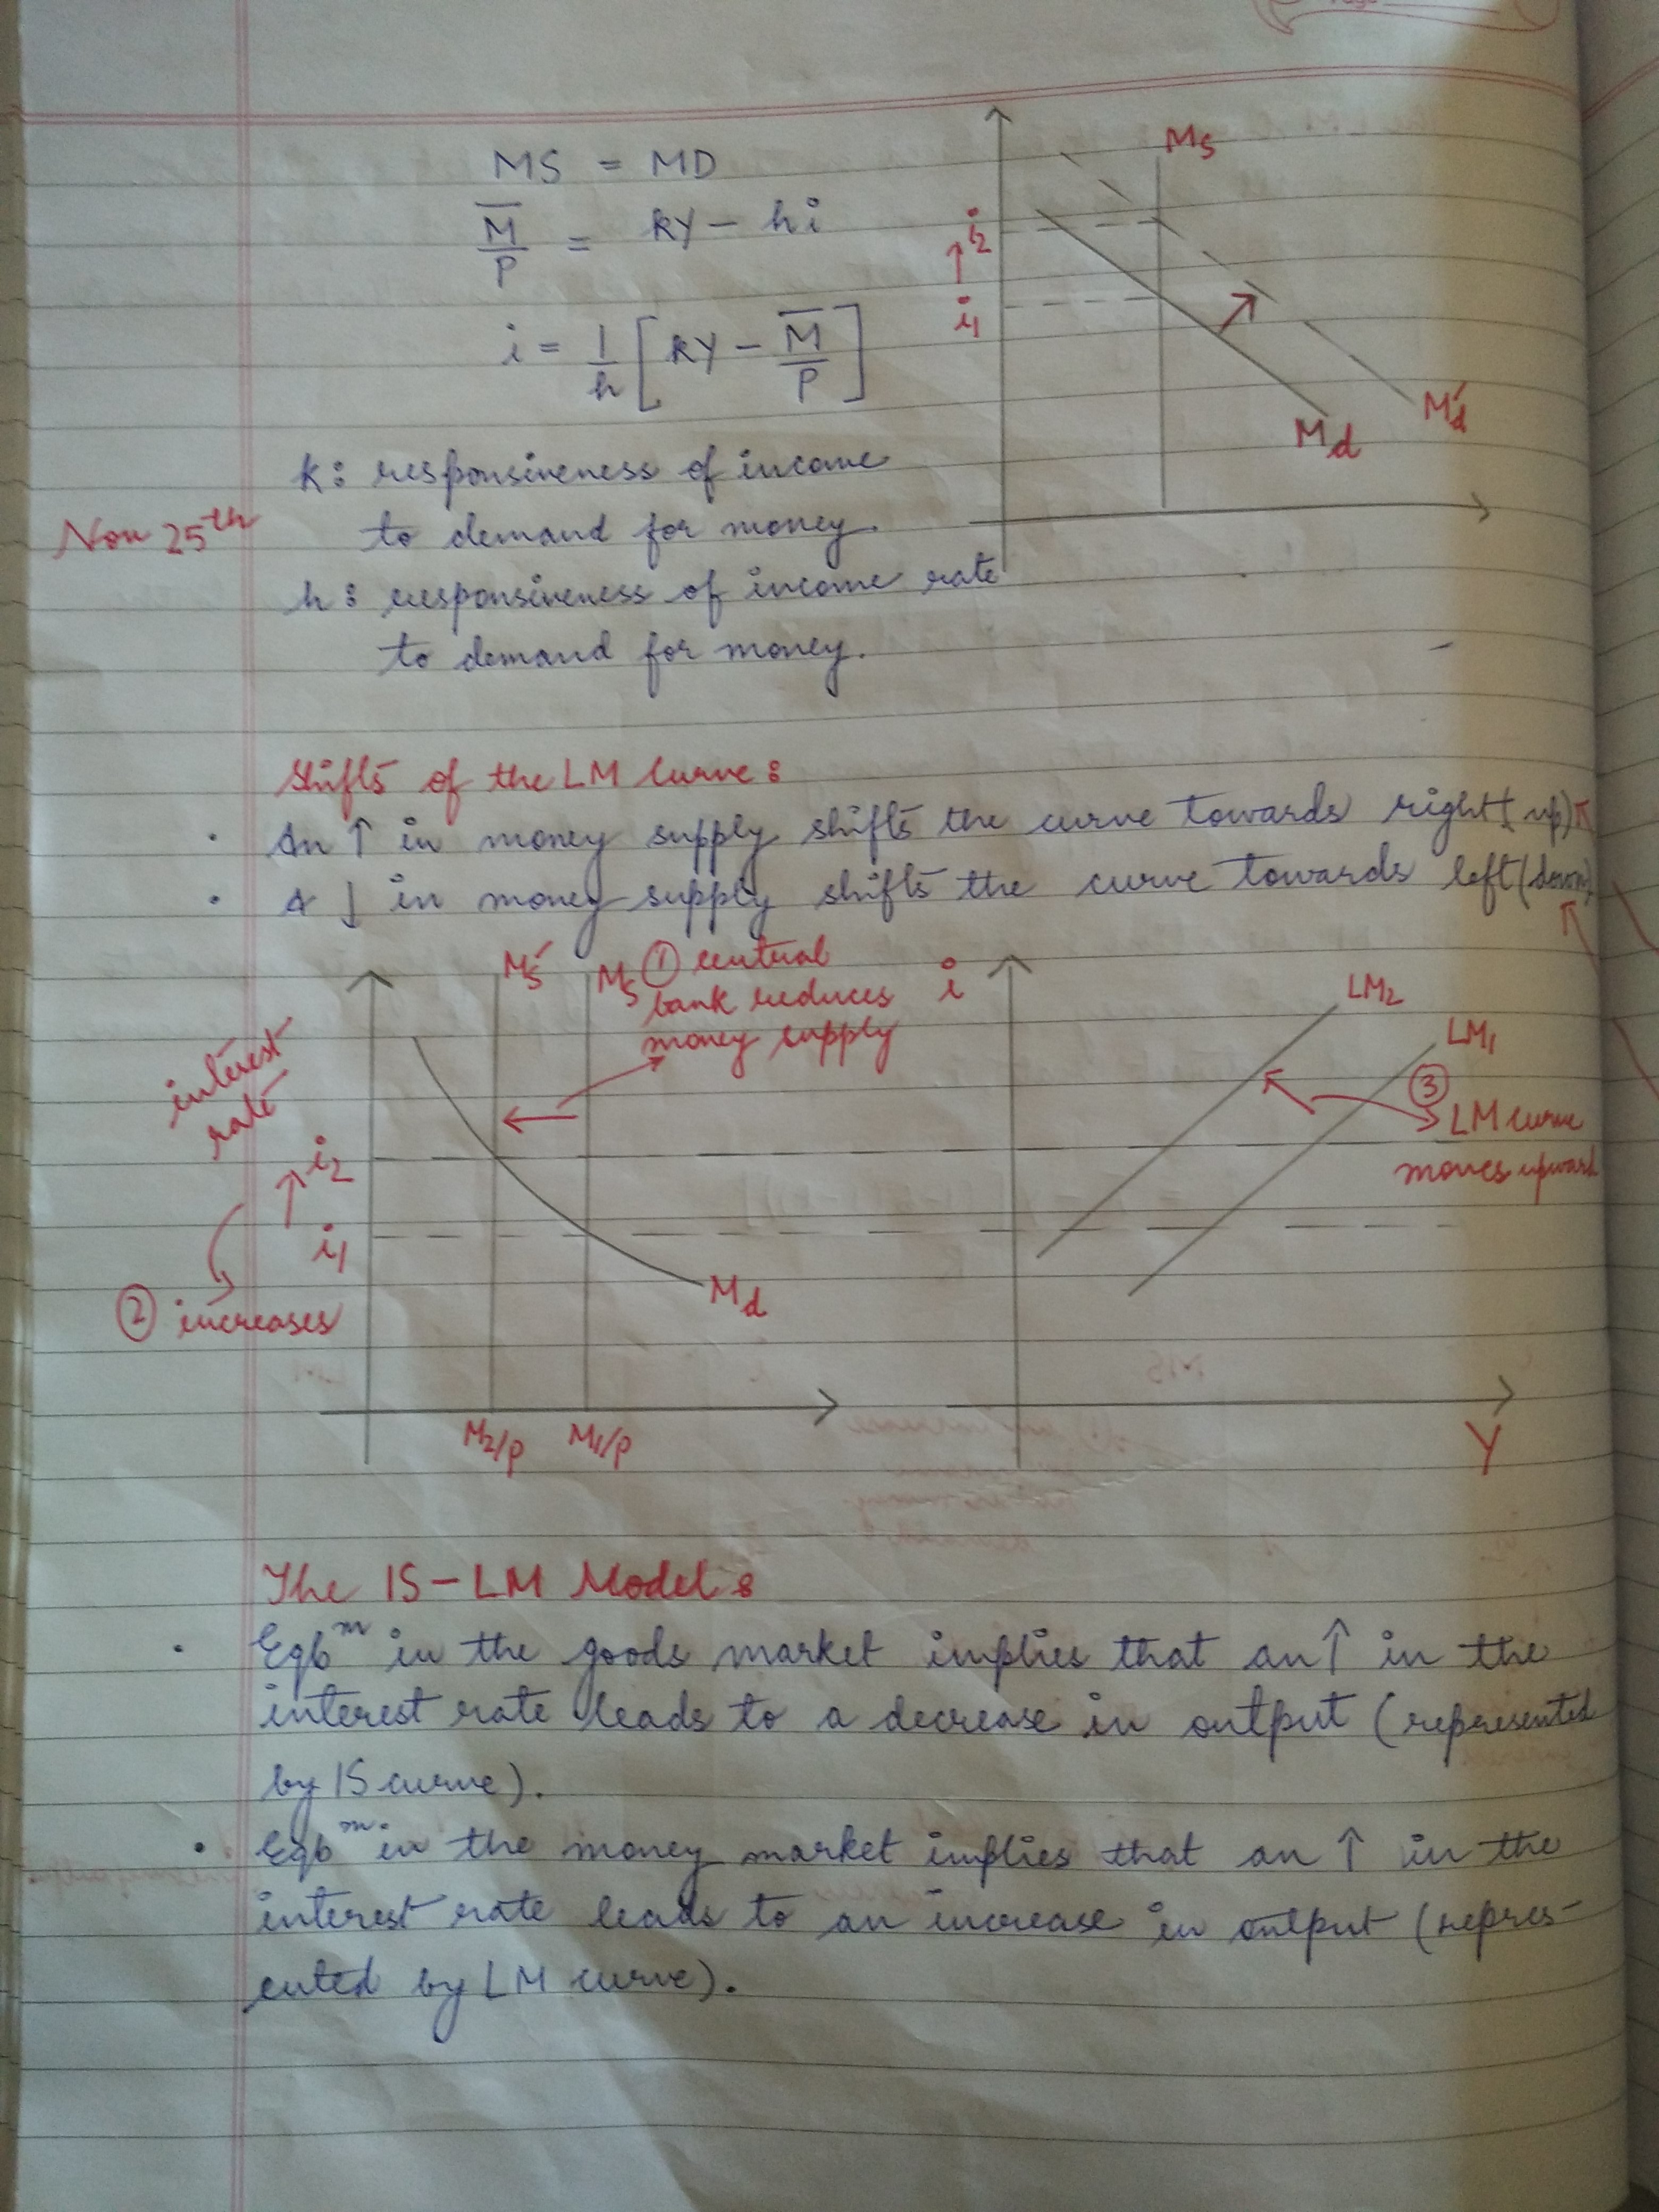 MS = MD
M̅/P = kY - hi
i = 1/h [kY - M̅/P]
Ms
i2
↑
i1
Md
Md'
k: responsiveness of income
Nov 25th
to demand for money.
h: responsiveness of income rate
to demand for money.
Shifts of the LM Curve:
· An ↑ in money supply shifts the curve towards right (up)
· A ↓ in money supply shifts the curve towards left (down)
Ms'
Ms
① central
bank reduces
money supply
interest
rate
i2
↑
i1
② increases
Md
M2/P
M1/P
i
LM2
LM1
③
LM curve
moves upward
Y
The IS-LM Model:
· Eqbm in the goods market implies that an ↑ in the
interest rate leads to a decrease in output (represented
by IS curve).
· Eqbm in the money market implies that an ↑ in the
interest rate leads to an increase in output (repres-
ented by LM curve).